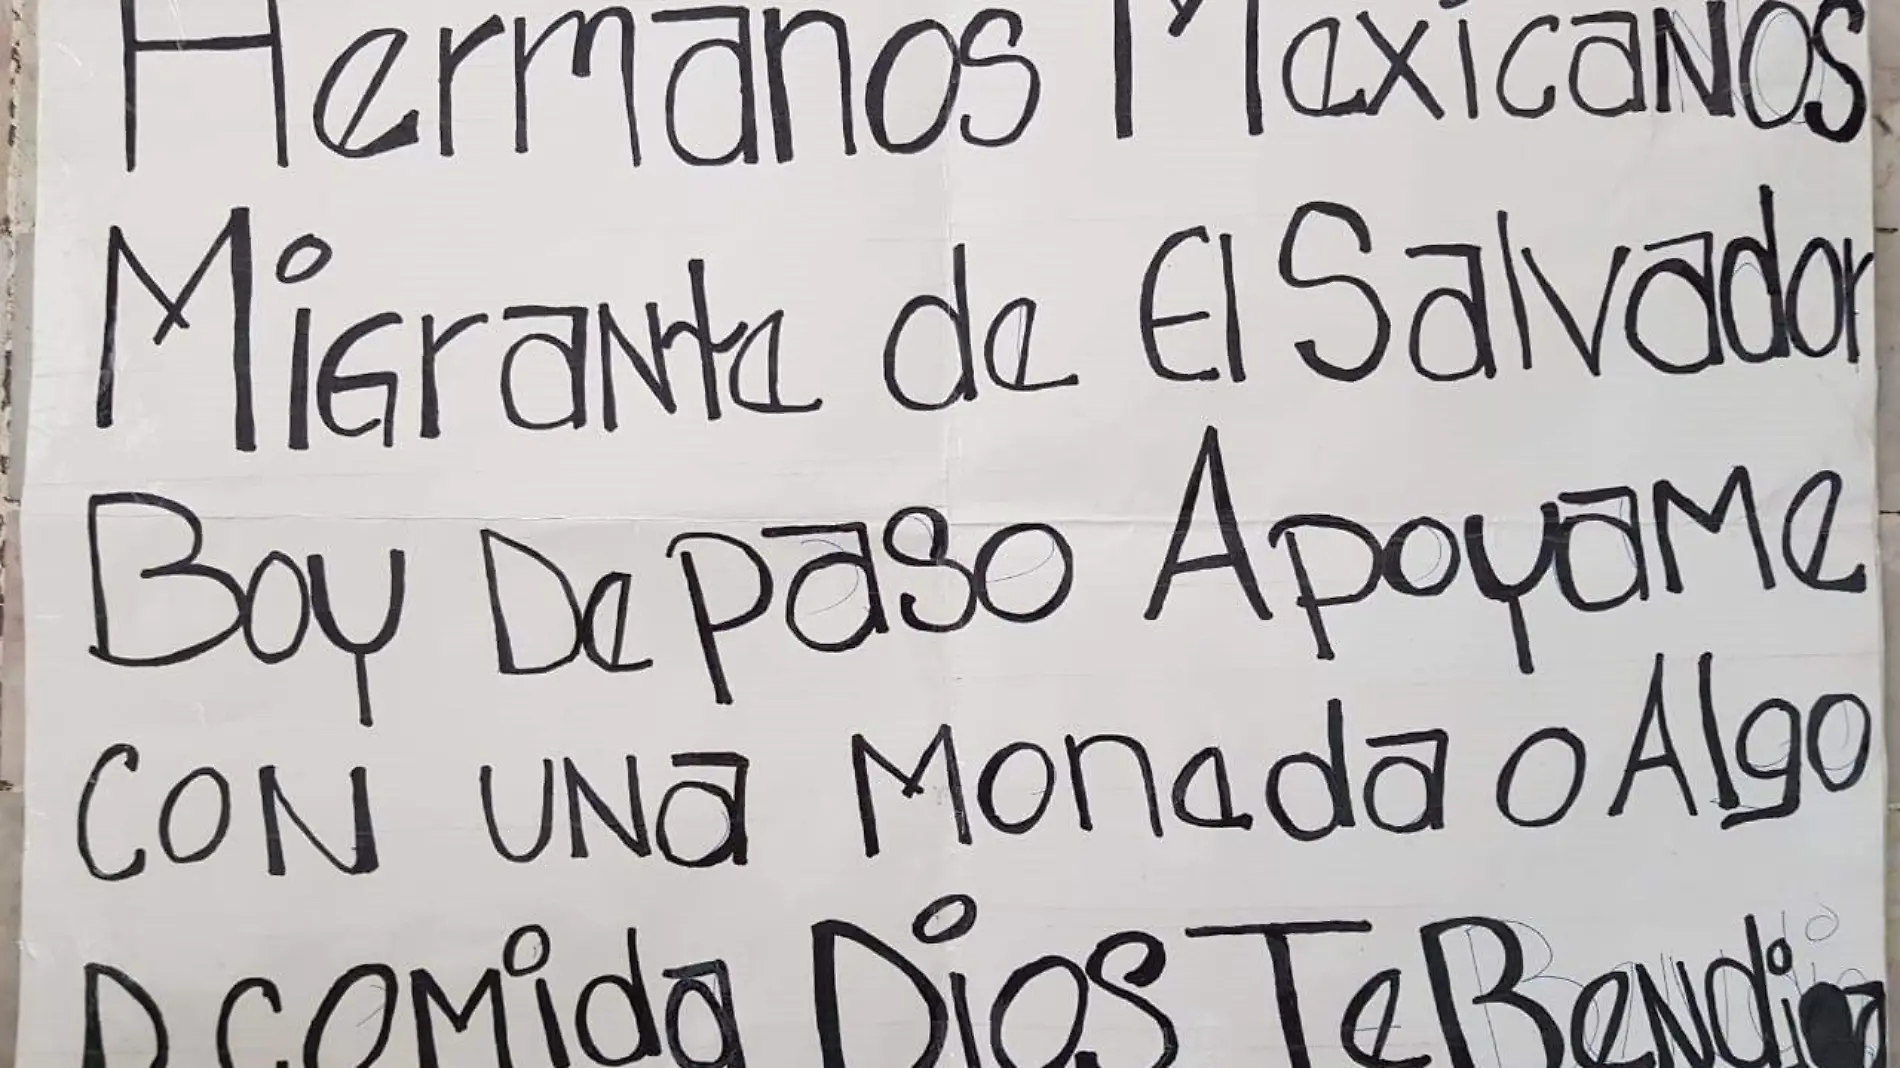 Hermanos Mexicanos
Migrante de El Salvador
Boy De paso Apoyame
con una Moneda o Algo
D comida Dios Te Bendiga